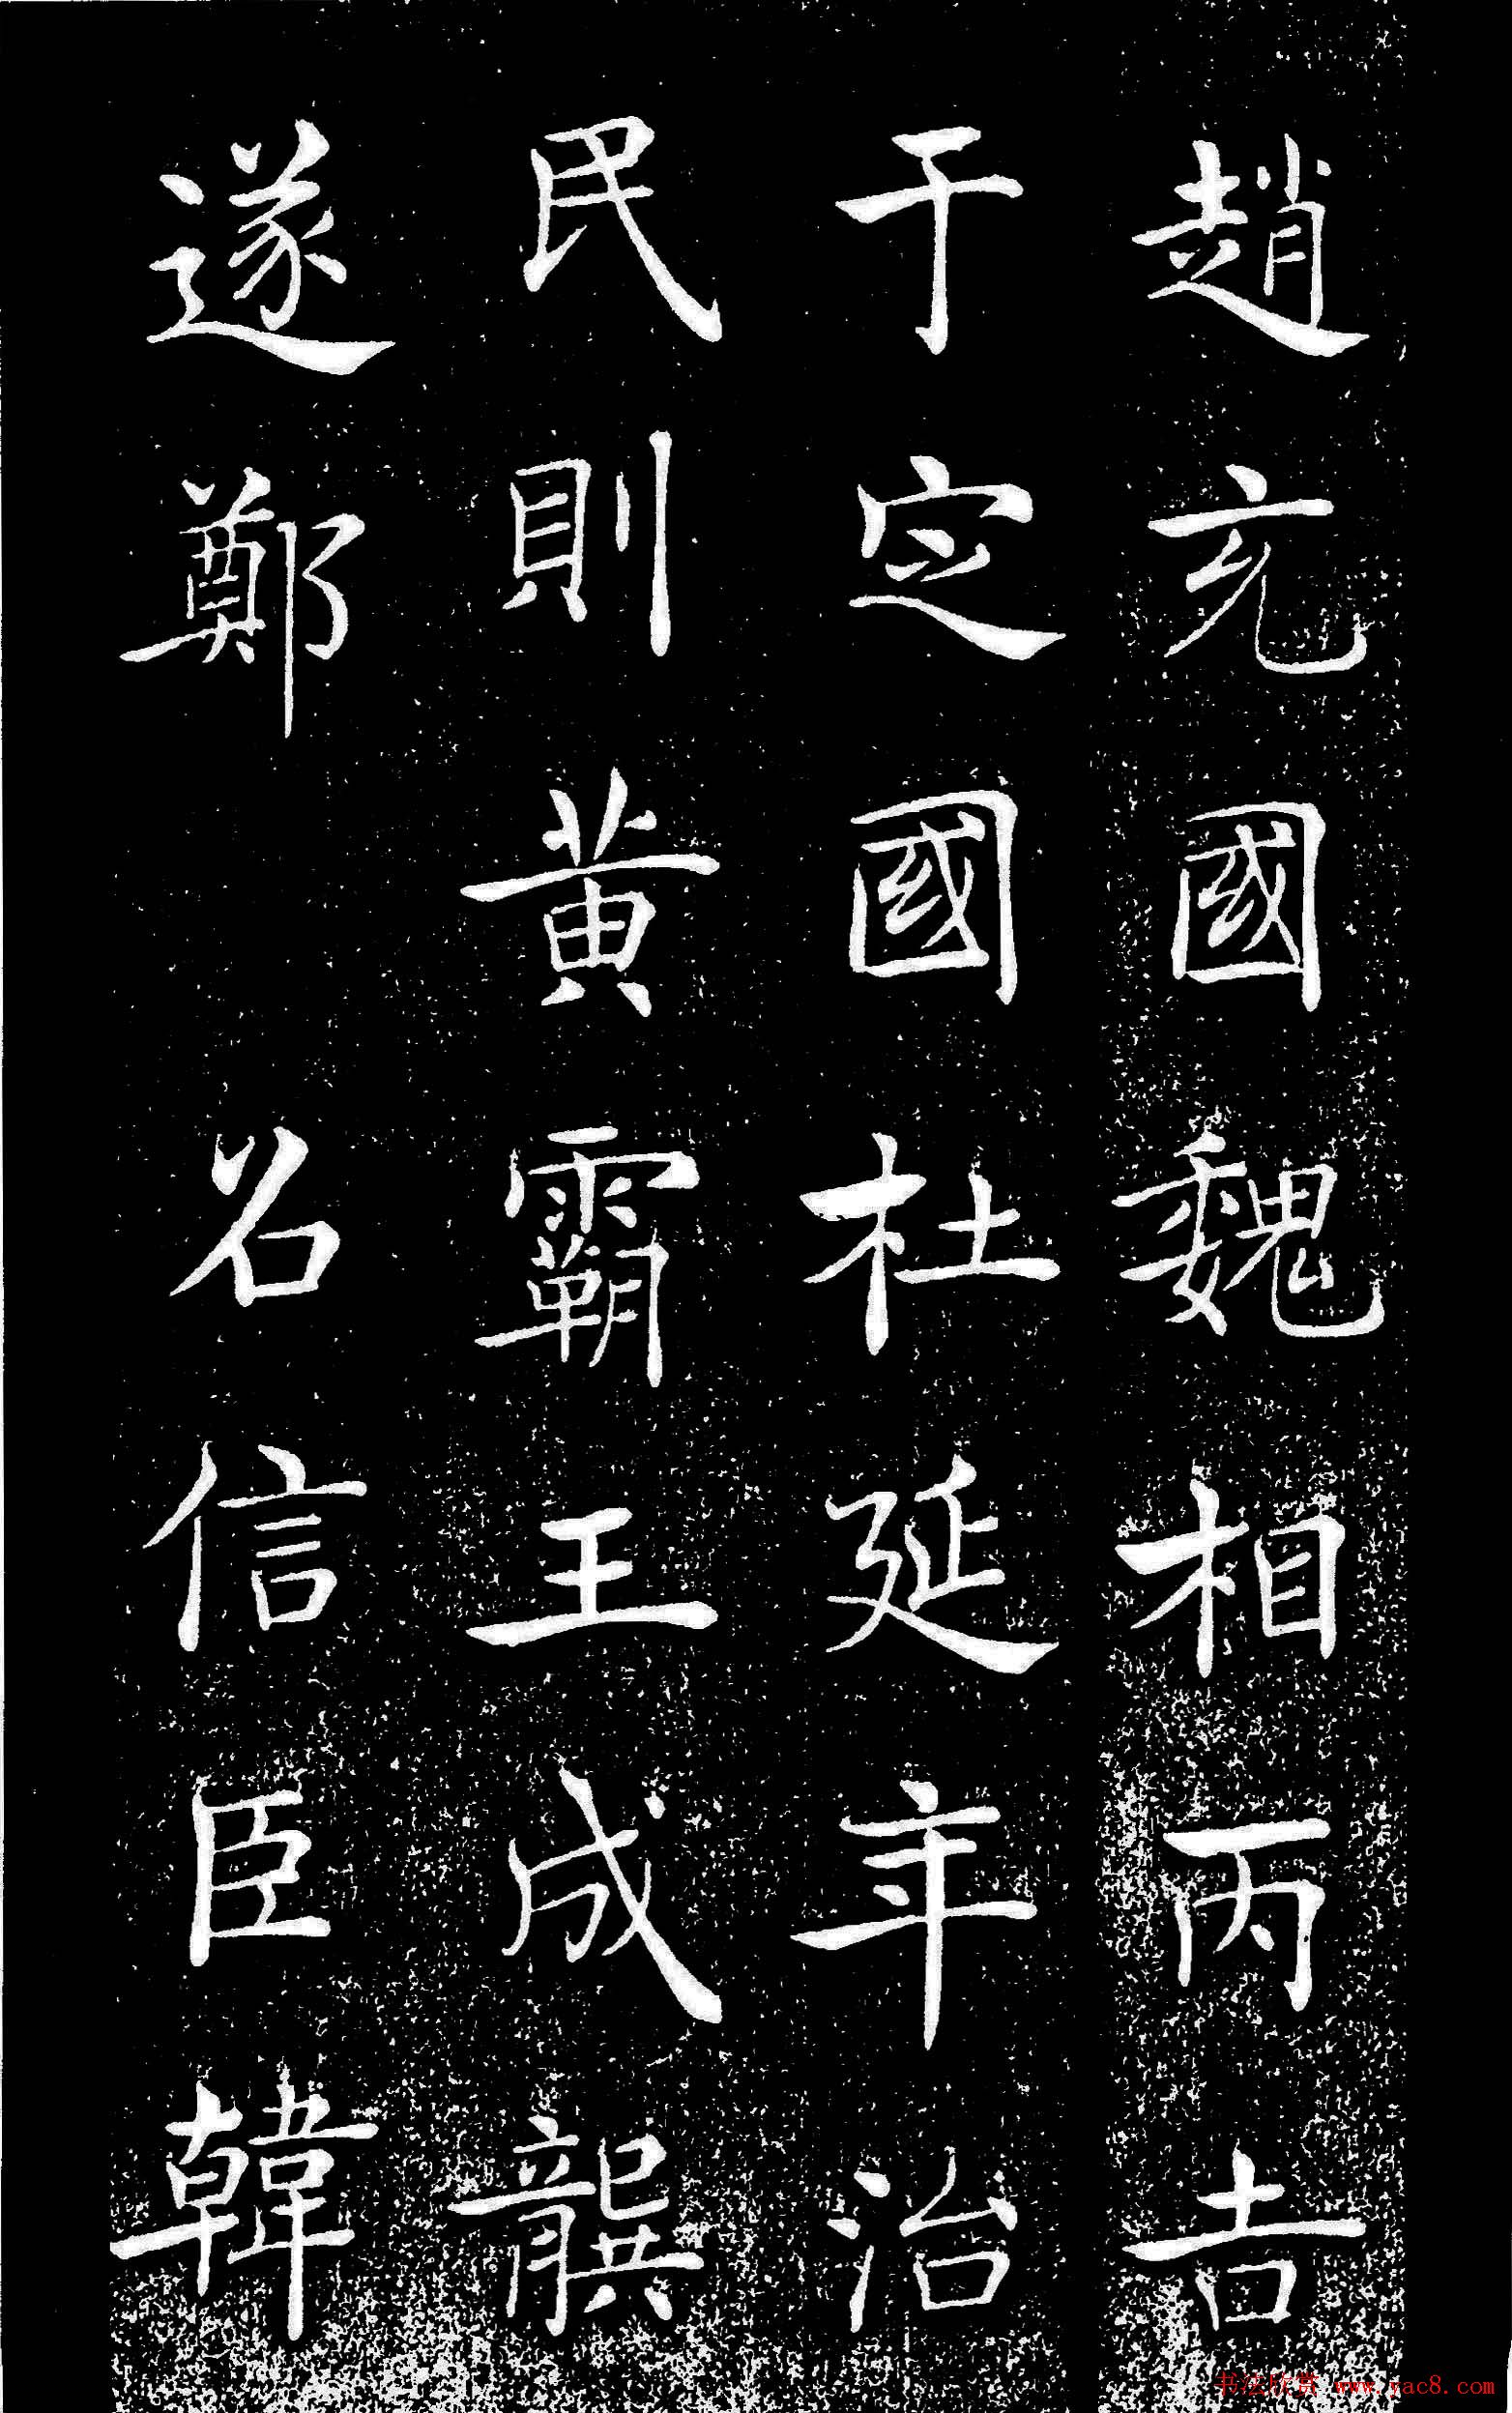 趙充國魏相丙吉
于定國杜延年治
民則黄霸王成龔
遂鄭 召信臣韓
书法欣赏 www.yac8.com